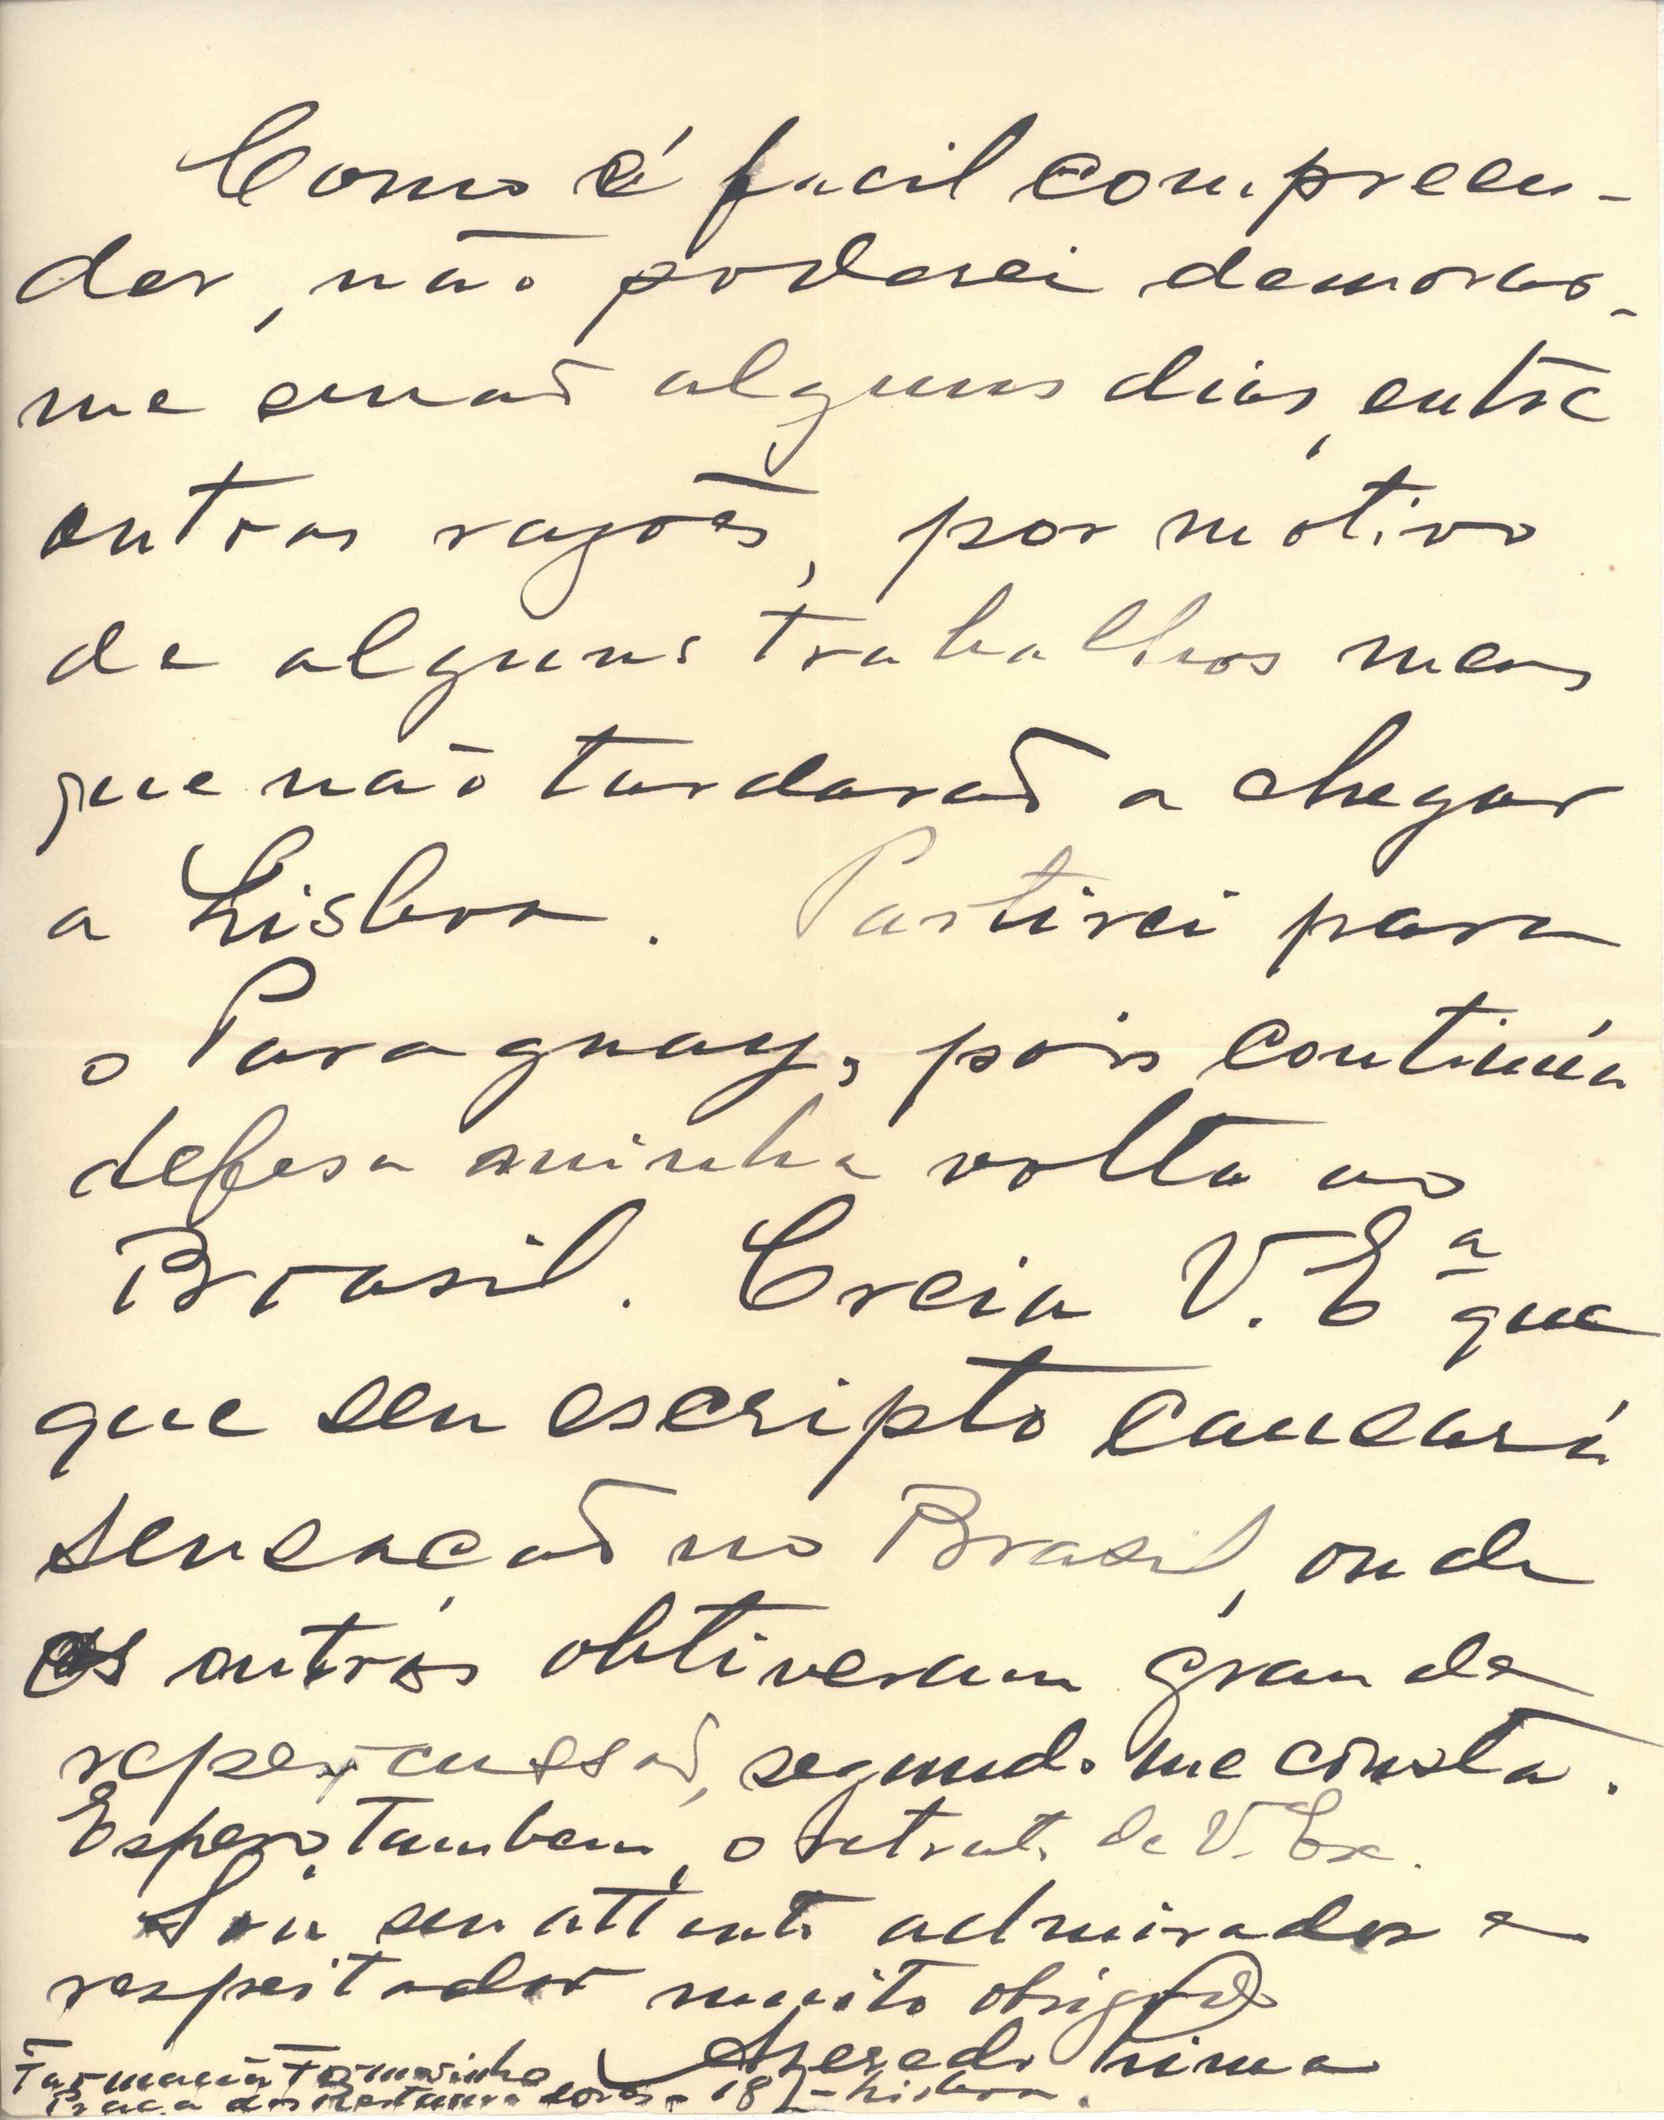 Como é facil compreen-
der, não poderei demorar-
me senaõ alguns dias, entre
outras razões, por motivo
de alguns trabalhos meus
que não tardaraõ a chegar
a Lisboa. Partirei para
o Paraguay, pois continúa
defesa minha volta ao
Brasil. Creia V. Eª que
que seu escripto causará
sensaçaõ no Brasil, onde
os outros obtiveram grande
repercussaõ, segundo me consta.
Espero, tambem, o retrato de V. Ex.
Sou seu attento admirador e
respeitador muito obrigado
Azeredo Lima
Farmacia Formosinho
Praça dos Restauradores, 18 - Lisboa.